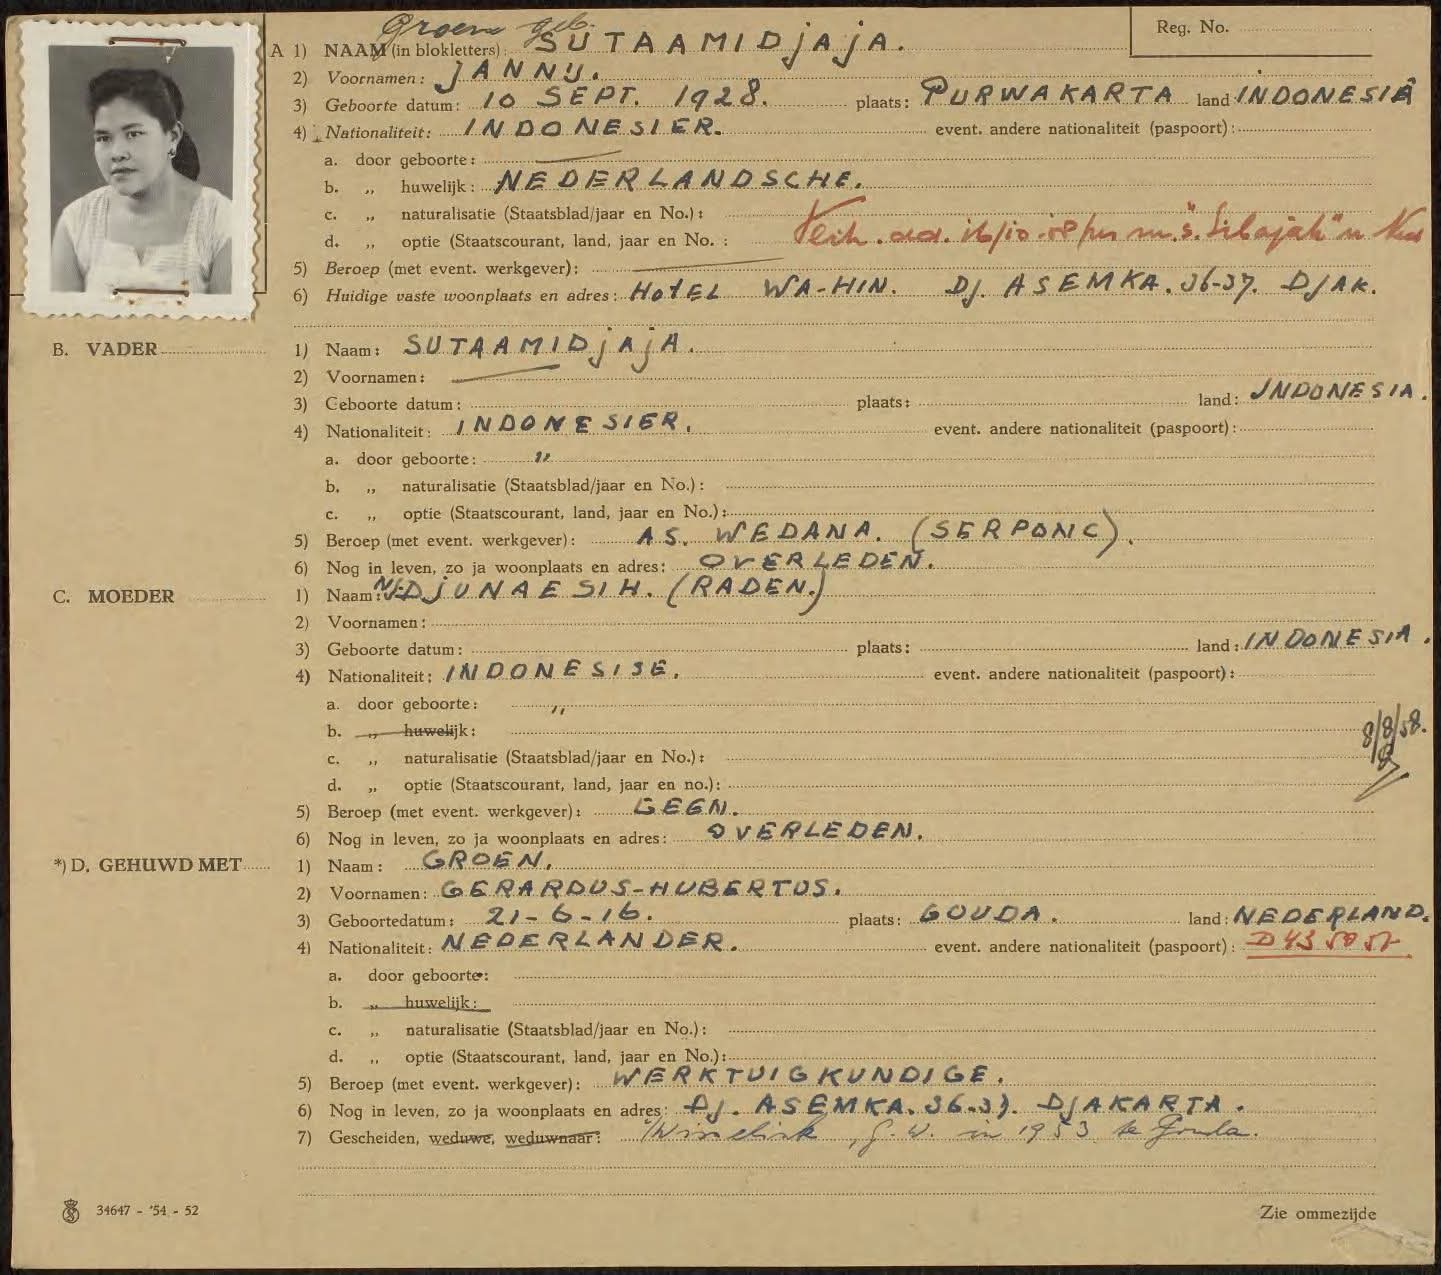 Groen geb.
Reg. No.
A 1) NAAM (in blokletters): SUTAAMIDjAjA.
2) Voornamen: JANNY.
3) Geboorte datum: 10 SEPT. 1928. plaats: PURWAKARTA land INDONESIA
4) Nationaliteit: INDONESIER. event. andere nationaliteit (paspoort):
a. door geboorte: —
b. „ huwelijk: NEDERLANDSCHE.
c. „ naturalisatie (Staatsblad/jaar en No.):
d. „ optie (Staatscourant, land, jaar en No. :
Vertr. dd. 16/10-58 per m.s. "Sibajak" n Ned
5) Beroep (met event. werkgever): —
6) Huidige vaste woonplaats en adres: HOTEL WA-HIN. Dj. ASEMKA. 36-37. DJAK.
B. VADER 1) Naam: SUTAAMIDjAjA.
2) Voornamen: —
3) Geboorte datum: plaats: land: INDONESIA.
4) Nationaliteit: INDONESIER. event. andere nationaliteit (paspoort):
a. door geboorte: "
b. „ naturalisatie (Staatsblad/jaar en No.):
c. „ optie (Staatscourant, land, jaar en No.):
5) Beroep (met event. werkgever): AS. WEDANA. (SERPONG).
6) Nog in leven, zo ja woonplaats en adres: OVERLEDEN.
C. MOEDER 1) Naam: DjUNAESIH. (RADEN.)
2) Voornamen:
3) Geboorte datum: plaats: land: INDONESIA.
4) Nationaliteit: INDONESISE. event. andere nationaliteit (paspoort):
a. door geboorte: "
b. „ huwelijk:
8/8/58.
c. „ naturalisatie (Staatsblad/jaar en No.):
d. „ optie (Staatscourant, land, jaar en no.):
5) Beroep (met event. werkgever): GEEN.
6) Nog in leven, zo ja woonplaats en adres: OVERLEDEN.
*) D. GEHUWD MET 1) Naam: GROEN.
2) Voornamen: GERARDUS-HUBERTUS.
3) Geboortedatum: 21-6-16. plaats: GOUDA. land: NEDERLAND.
4) Nationaliteit: NEDERLANDER. event. andere nationaliteit (paspoort): D 43
a. door geboorte:
b. „ huwelijk:
c. „ naturalisatie (Staatsblad/jaar en No.):
d. „ optie (Staatscourant, land, jaar en No.):
5) Beroep (met event. werkgever): WERKTUIGKUNDIGE.
6) Nog in leven, zo ja woonplaats en adres: Dj. ASEMKA. 36-37. DJAKARTA.
7) Gescheiden, weduwe, weduwnaar: , G. W. in 1953 te Gouda.
34647 - '54 - 52
Zie ommezijde